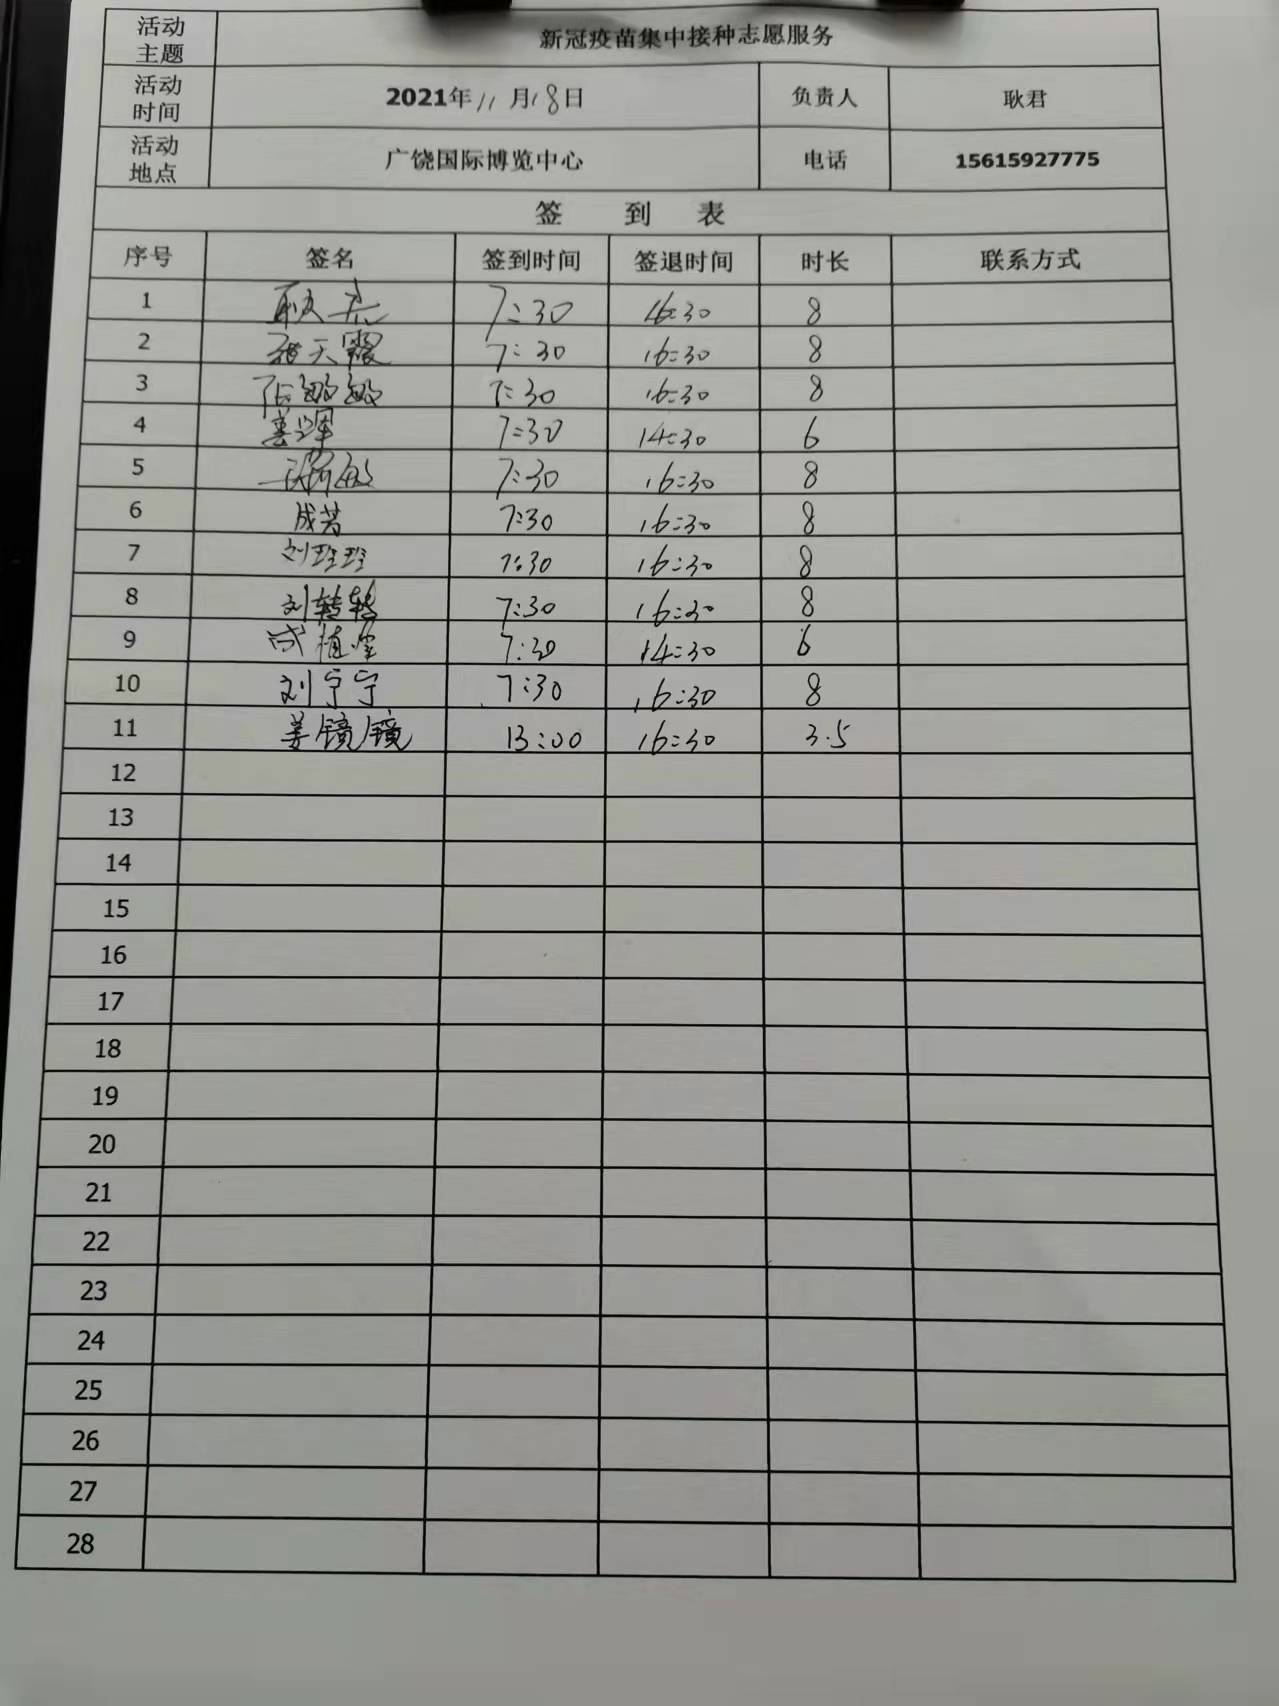 活动主题 新冠疫苗集中接种志愿服务
活动时间 2021年11月18日 负责人 耿君
活动地点 广饶国际博览中心 电话 15615927775
签 到 表
序号 签名 签到时间 签退时间 时长 联系方式
1 7:30 16:30 8
2 7:30 16:30 8
3 张敏敏 7:30 16:30 8
4 7:30 14:30 6
5 7:30 16:30 8
6 成芳 7:30 16:30 8
7 刘玲玲 7:30 16:30 8
8 刘转转 7:30 16:30 8
9 7:30 14:30 6
10 刘宁宁 7:30 16:30 8
11 姜镜镜 13:00 16:30 3.5
12
13
14
15
16
17
18
19
20
21
22
23
24
25
26
27
28